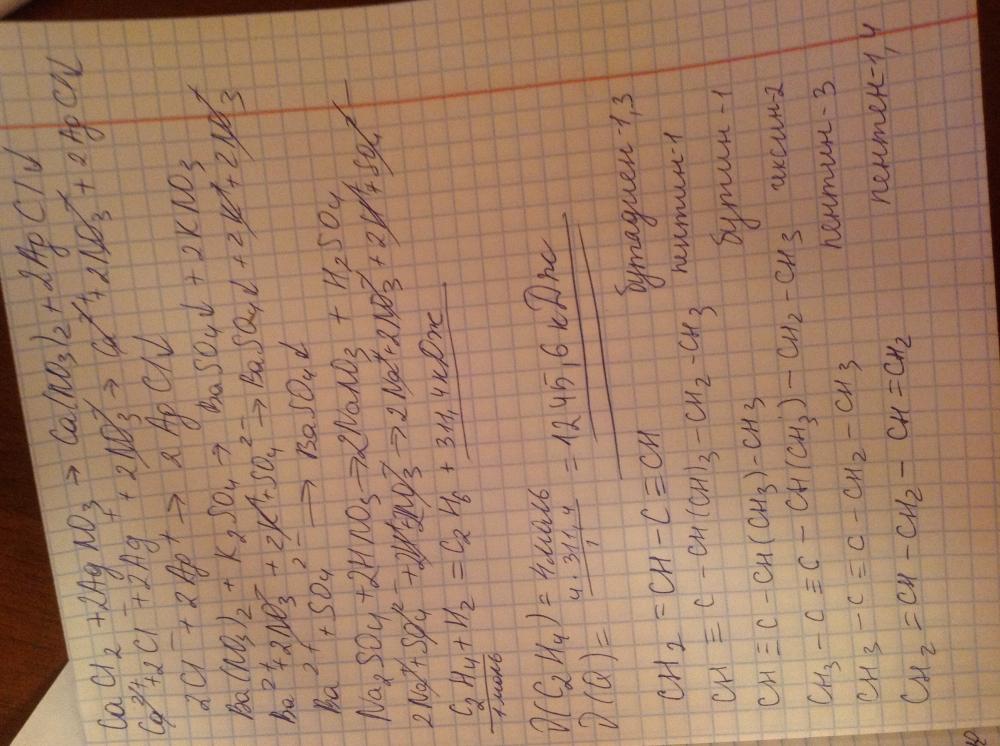 CaCl2 + 2AgNO3 → Ca(NO3)2 + 2AgCl↓
Ca2+ + 2Cl- + 2Ag+ + 2NO3- → Ca2+ + 2NO3- + 2AgCl↓
2Cl- + 2Ag+ → 2AgCl↓
Ba(NO3)2 + K2SO4 → BaSO4↓ + 2KNO3
Ba2+ + 2NO3- + 2K+ + SO42- → BaSO4↓ + 2K+ + 2NO3-
Ba2+ + SO42- → BaSO4↓
Na2SO4 + 2HNO3 → 2NaNO3 + H2SO4
2Na+ + SO42- + 2H+ + 2NO3- → 2Na+ + 2NO3- + 2H+ + SO42-
C2H4 + H2 = C2H6 + 311,4кДж
1 моль
ν(C2H4) = 4моль
ν(Q) = 4·311,4 / 1 = 1245,6 кДж
CH2 = CH - C ≡ CH бутадиен-1,3
CH ≡ C - CH(CH)3 - CH2 - CH3 пентин-1
CH ≡ C - CH(CH3) - CH3 бутин-1
CH3 - C ≡ C - CH(CH3) - CH2 - CH3 гексин-2
CH3 - C ≡ C - CH2 - CH3 пентин-3
CH2 = CH - CH2 - CH = CH2 пентен-1,4